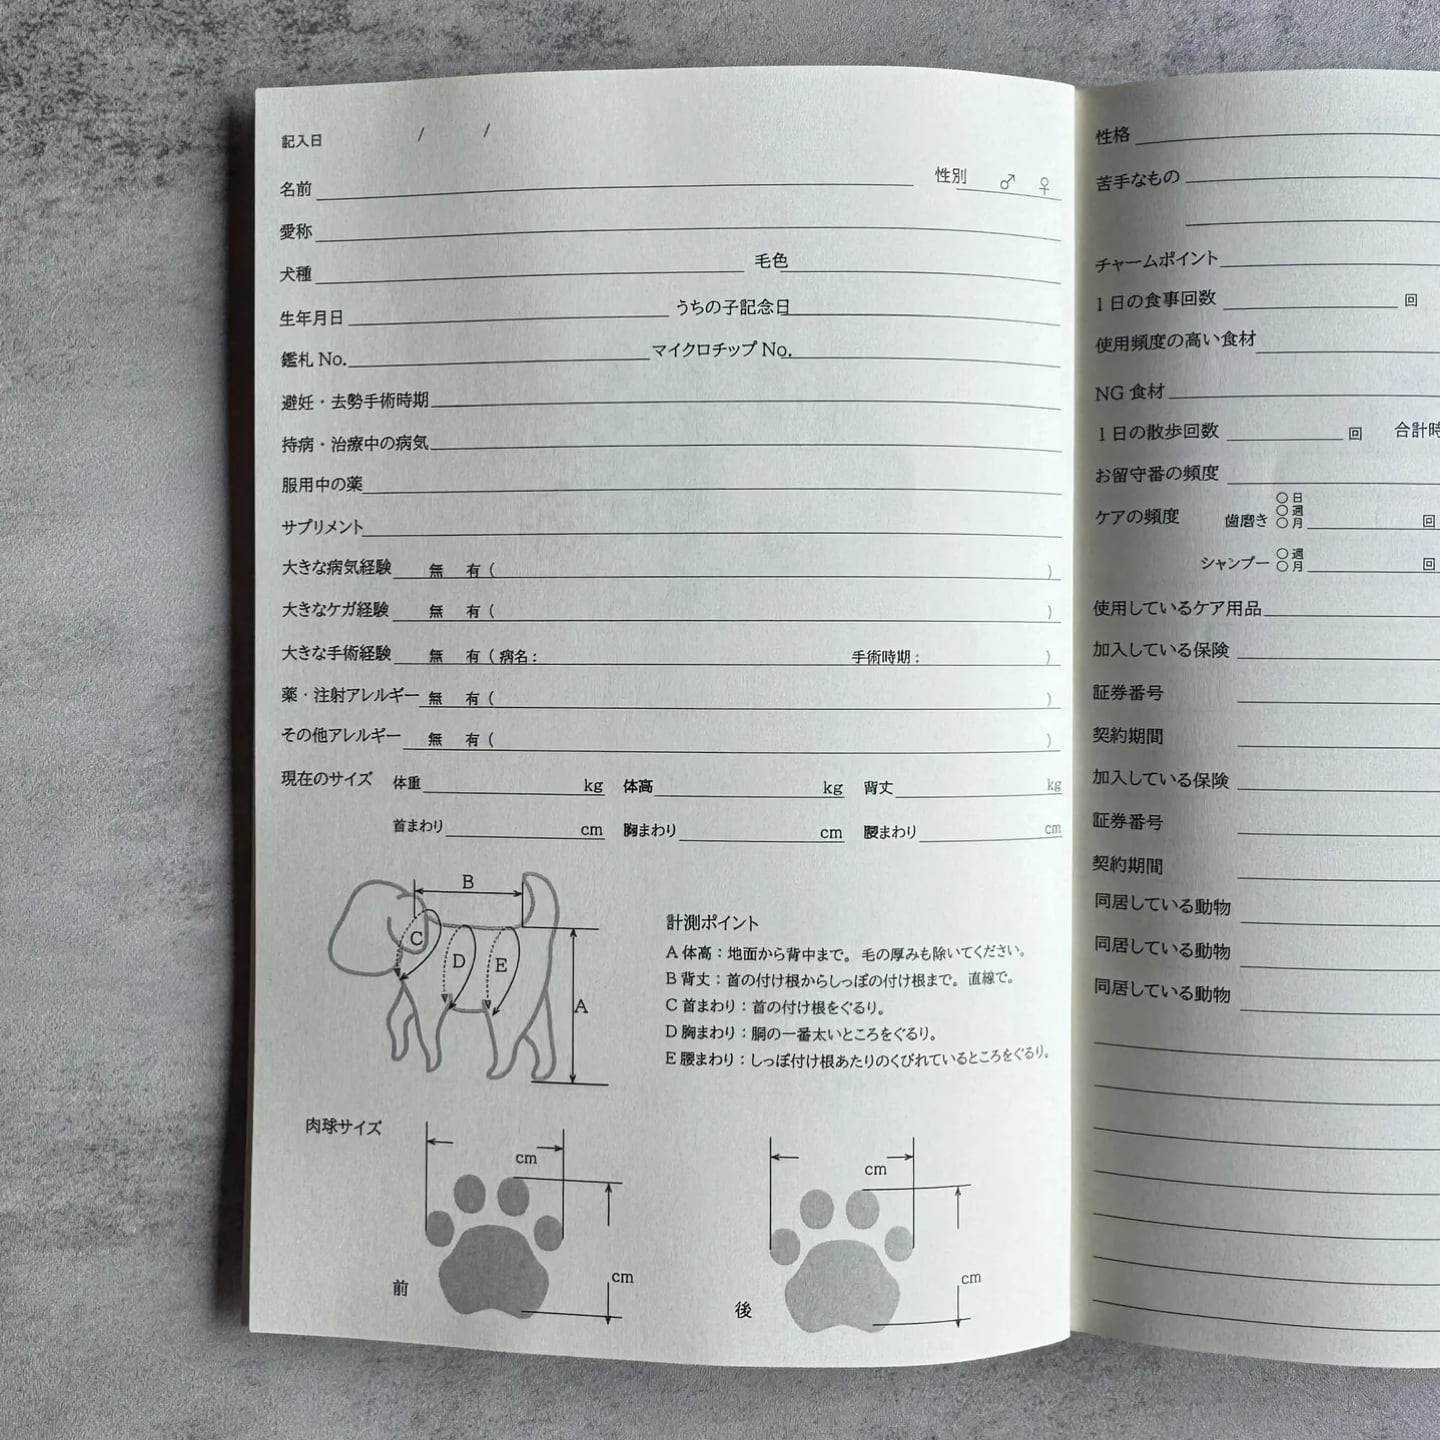 記入日 / /
名前 性別 ♂ ♀
愛称
犬種 毛色
生年月日 うちの子記念日
鑑札 No. マイクロチップ No.
避妊・去勢手術時期
持病・治療中の病気
服用中の薬
サプリメント
大きな病気経験 無 有 ( )
大きなケガ経験 無 有 ( )
大きな手術経験 無 有 ( 病名: 手術時期: )
薬・注射アレルギー 無 有 ( )
その他アレルギー 無 有 ( )
現在のサイズ 体重 kg 体高 kg 背丈 kg
首まわり cm 胸まわり cm 腰まわり cm
B
C
D
E
A
計測ポイント
A 体高:地面から背中まで。毛の厚みも除いてください。
B 背丈:首の付け根からしっぽの付け根まで。直線で。
C 首まわり:首の付け根をぐるり。
D 胸まわり:胴の一番太いところをぐるり。
E 腰まわり:しっぽ付け根あたりのくびれているところをぐるり。
肉球サイズ
cm
cm
前
cm
cm
後
性格
苦手なもの
チャームポイント
1日の食事回数 回
使用頻度の高い食材
NG 食材
1日の散歩回数 回 合計時
お留守番の頻度
ケアの頻度 歯磨き ○日 ○週 ○月 回
シャンプー ○週 ○月 回
使用しているケア用品
加入している保険
証券番号
契約期間
加入している保険
証券番号
契約期間
同居している動物
同居している動物
同居している動物